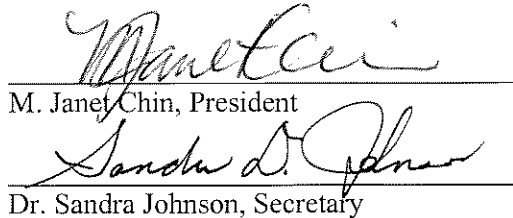 M Janet Chin
M. Janet Chin, President
Sandra D. Johnson
Dr. Sandra Johnson, Secretary